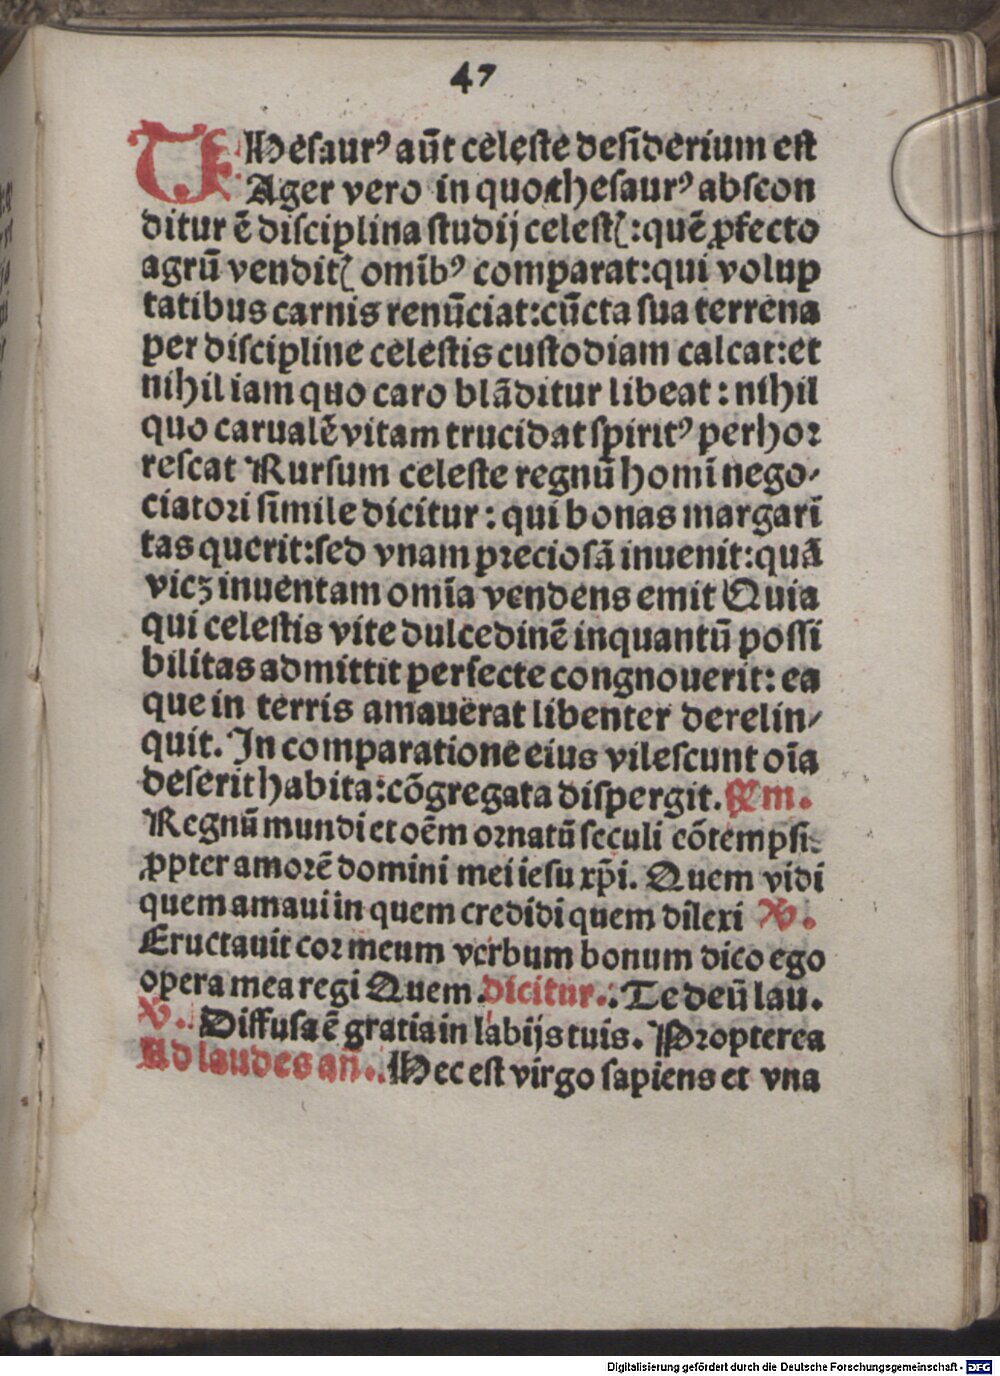 47
THesaurꝰ aūt celeste desiderium est
Ager vero in quo thesaurꝰ abscon
ditur ē disciplina studij celestꝭ: quē ꝓfecto
agrū venditꝭ omībꝰ comparat: qui volup
tatibus carnis renūciat: cūcta sua terrena
per discipline celestis custodiam calcat: et
nihil iam quo caro blāditur libeat: nihil
quo carualē vitam trucidat spiritꝰ perhor
rescat Rursum celeste regnū homī nego⸗
ciatori simile dicitur: qui bonas margarī
tas querit: sed vnam preciosā inuenit: quā
vicꝫ inuentam omīa vendens emit Quia
qui celestis vite dulcedinē inquantū possi
bilitas admittit perfecte congnouerit: ea
que in terris amauerat libenter derelin⸗
quit. In comparatione eius vilescunt oīa
deserit habita: cōgregata dispergit. Rm.
Regnū mundi et oēm ornatū seculi cōtempsi.
ꝓpter amorē domini mei iesu xp̄i. Quem vidi
quem amaui in quem credidi quem dilexi V.
Eructauit cor meum verbum bonum dico ego
opera mea regi Quem. dicitur. Te deū lau.
V. Diffusa ē gratia in labijs tuis. Propterea
Ad laudes an̄. Hec est virgo sapiens et vna
Digitalisierung gefördert durch die Deutsche Forschungsgemeinschaft - DFG